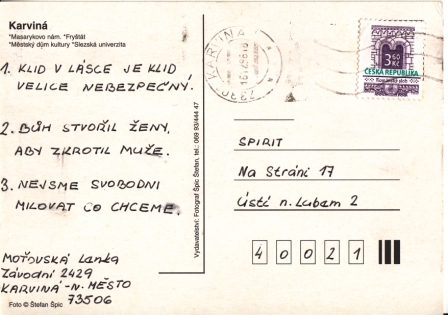 Karviná
*Masarykovo nám. *Fryštát
*Městský dům kultury *Slezská univerzita
1. KLID V LÁSCE JE KLID
VELICE NEBEZPEČNÝ!
2. BŮH STVOŘIL ŽENY,
ABY ZKROTIL MUŽE.
3. NEJSME SVOBODNI
MILOVAT CO CHCEME.
MOŤOVSKÁ Lanka
Závodní 2429
KARVINÁ-N. MĚSTO
73506
Foto © Štefan Špic
Vydavatelství: Fotograf Špic Štefan, tel.: 069 93/444 47
KARVINÁ
3,60
Kč
ČESKÁ REPUBLIKA
SPIRIT
Na Stráni 17
Ústí n. Labem 2
40021